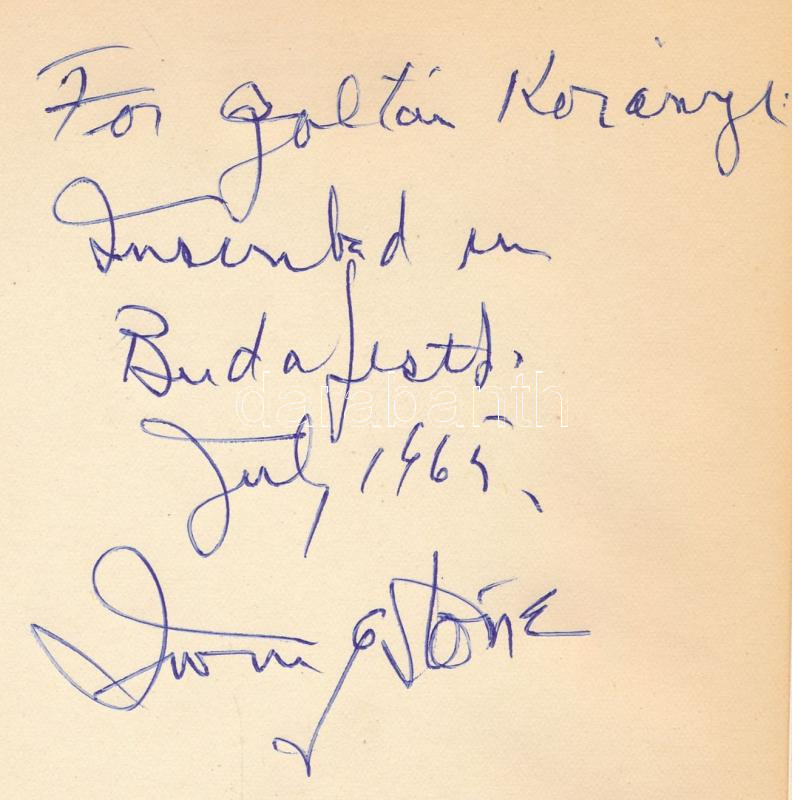 For Zoltán Korányi:
Inscribed in
Budapest.
darabanth
July 1965.
Irving Stone